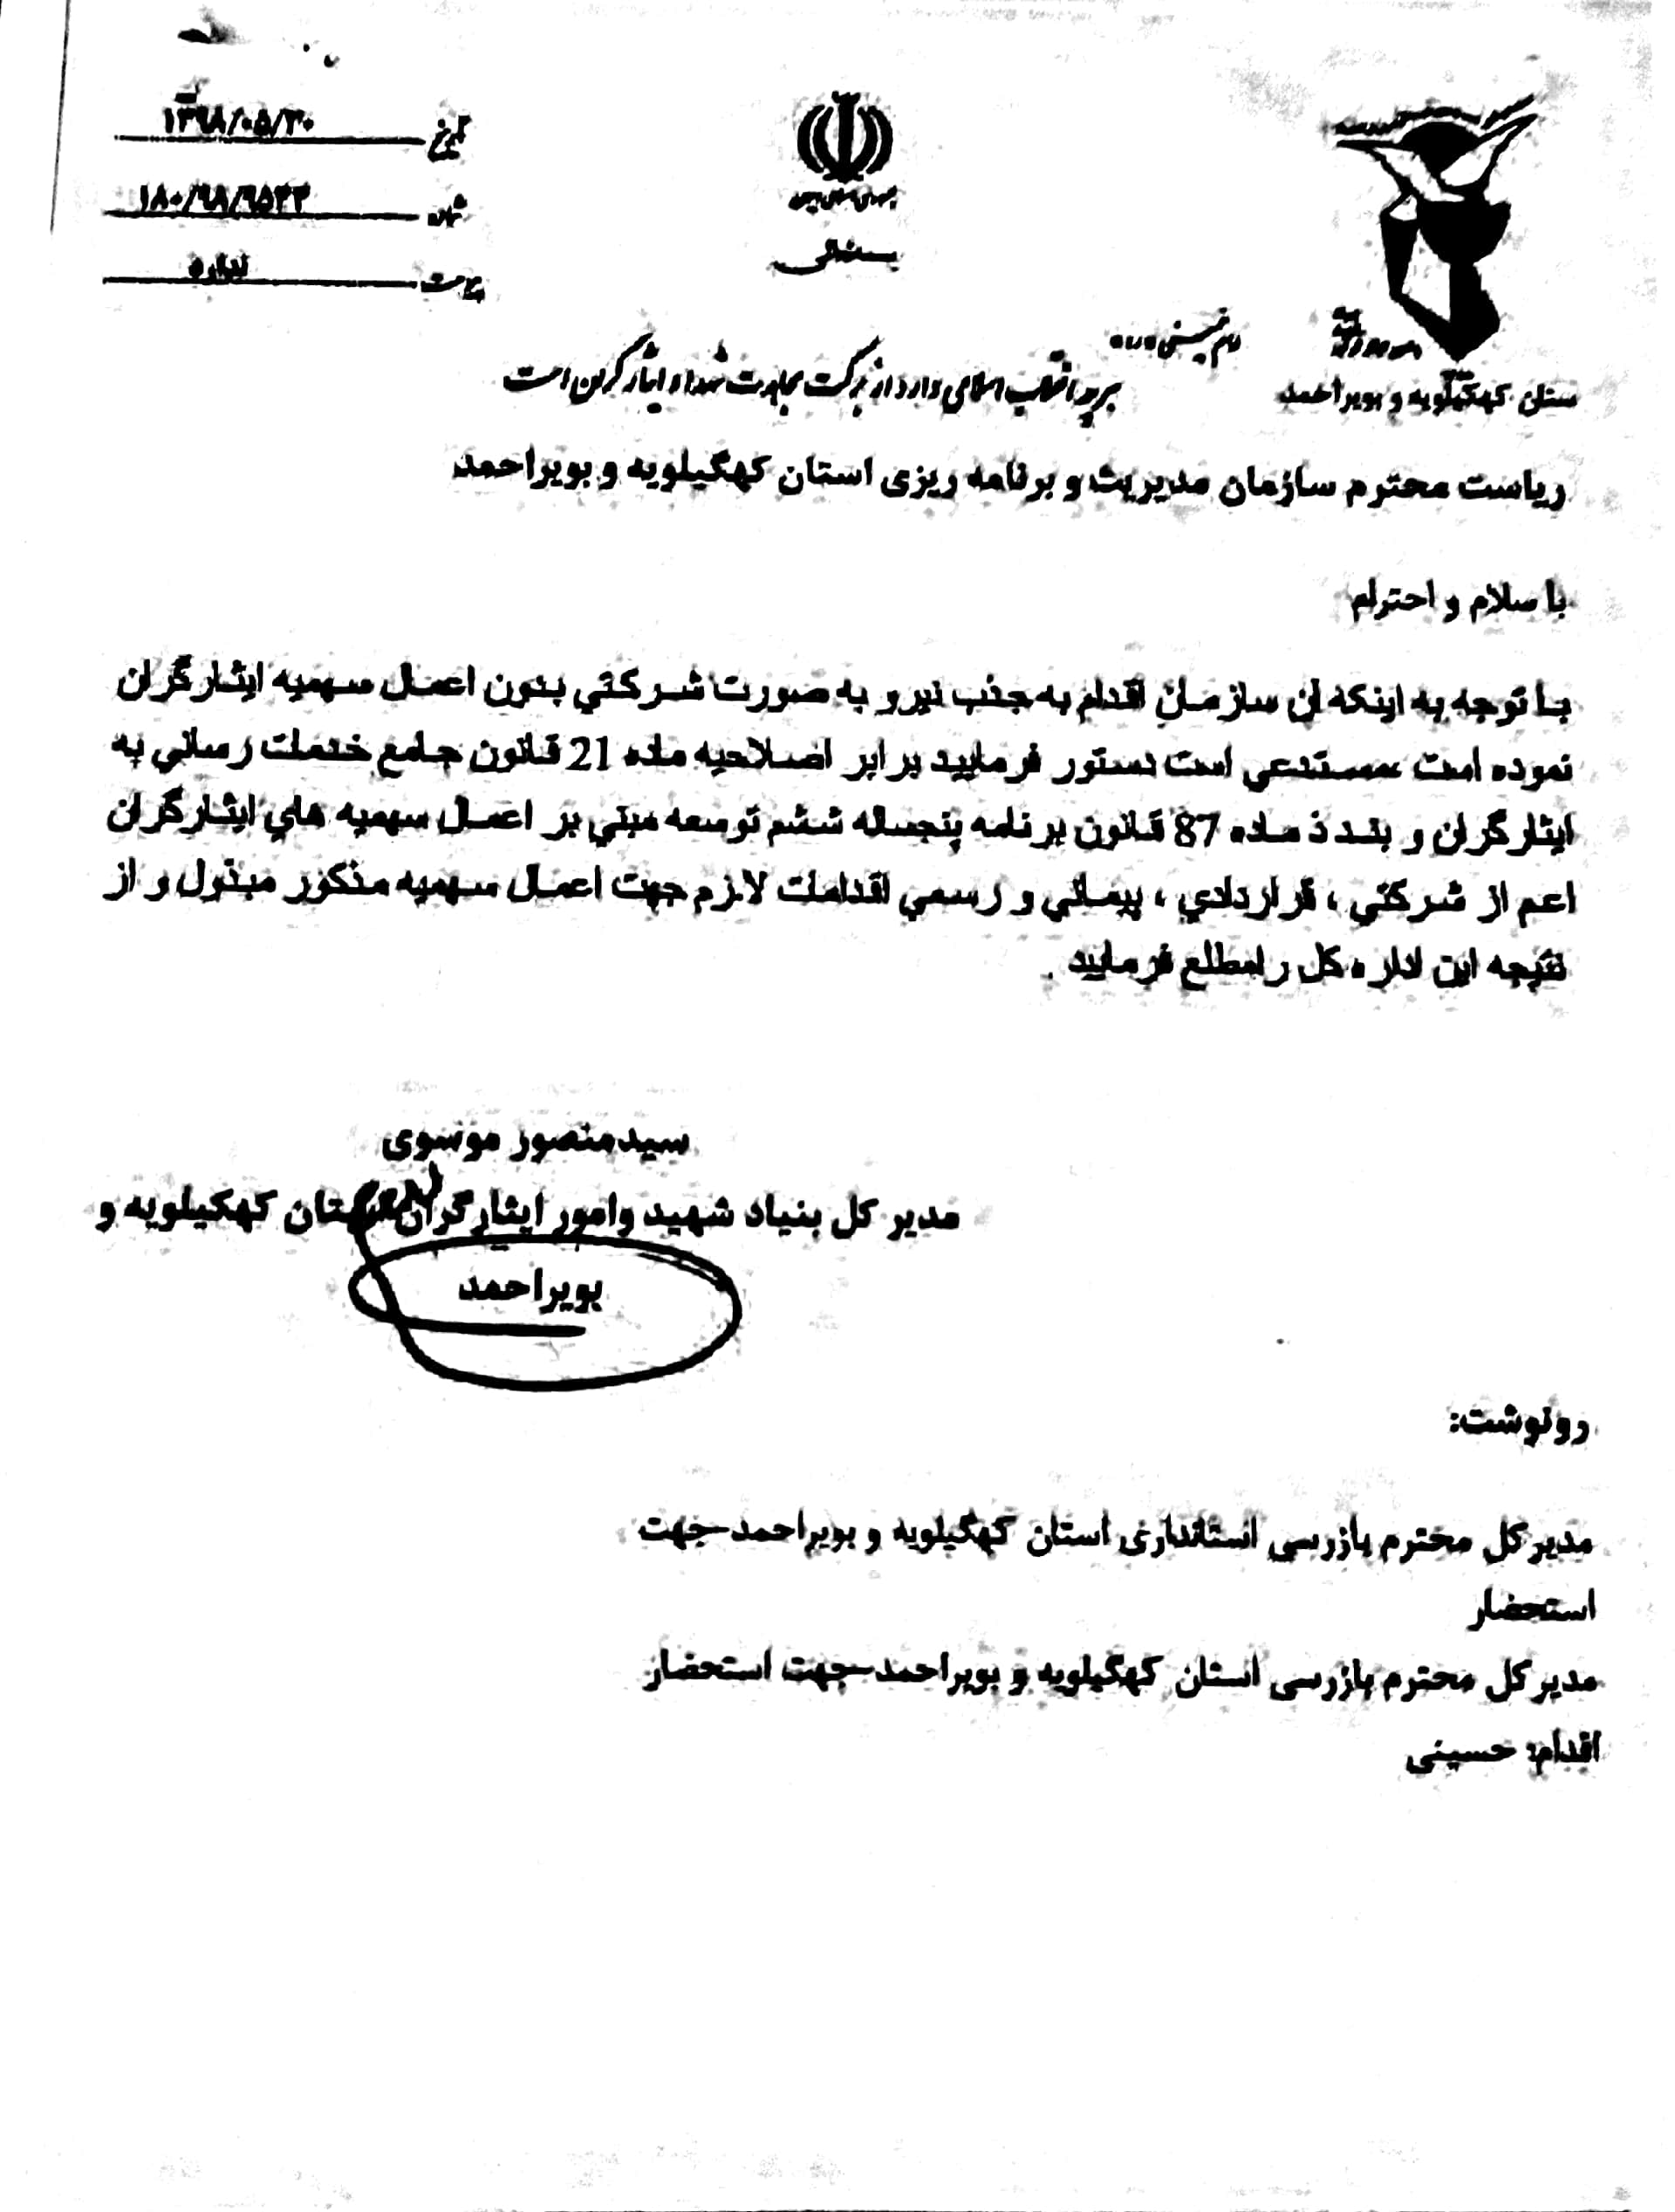 تاریخ ۱۳۹۸/۰۵/۳۰
شماره ۱۸۰/۹۸/۶۵۲۲
پیوست ندارد
جمهوری اسلامی ایران
بسمه تعالی
استان کهگیلویه و بویراحمد
هر چه انقلاب اسلامی دارد از برکت مجاهدت شهدا و ایثارگران است
ریاست محترم سازمان مدیریت و برنامه ریزی استان کهگیلویه و بویراحمد
با سلام و احترام
با توجه به اینکه آن سازمان اقدام به جذب نیرو به صورت شرکتي بدون اعمال سهمیه ایثارگران
نموده است مستدعي است دستور فرمایید برابر اصلاحیه ماده 21 قانون جامع خدمات رساني به
ایثارگران و بند ذ ماده 87 قانون برنامه پنجساله ششم توسعه مبني بر اعمال سهمیه هاي ایثارگران
اعم از شرکتي ، قراردادي ، پیماني و رسمي اقدامات لازم جهت اعمال سهمیه مذکور مبذول و از
نتیجه این اداره کل را مطلع فرمایید .
سیدمنصور موسوی
مدیر کل بنیاد شهید وامور ایثارگران استان کهگیلویه و
بویراحمد
رونوشت:
مدیر کل محترم بازرسی استانداری استان کهگیلویه و بویراحمد-جهت
استحضار
مدیر کل محترم بازرسی استان کهگیلویه و بویراحمد-جهت استحضار
اقدام: حسینی